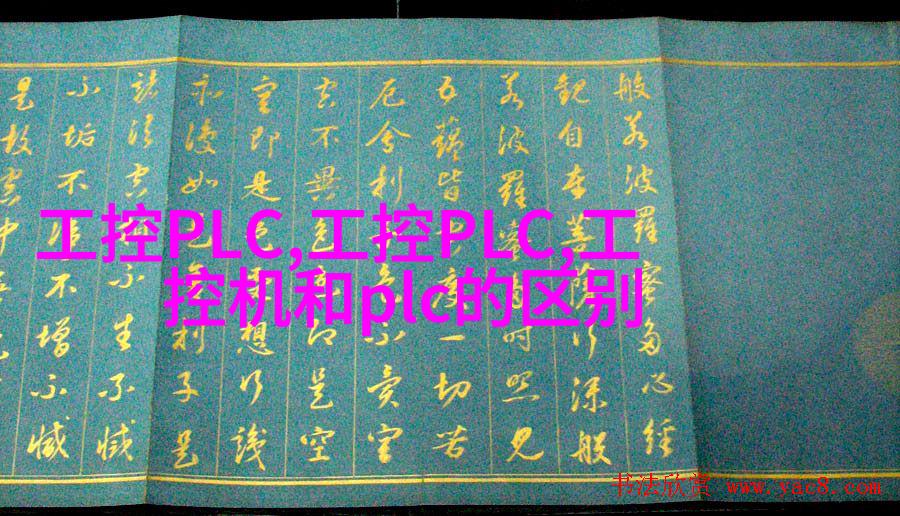 般若波羅蜜多心經
觀自在菩薩行深般
若波羅蜜多時照見
五蘊皆空度一切苦
厄舍利子色不異空
空不異色色即是空
空即是色受想行識
亦復如是舍利子是
諸法空相不生不滅
不垢不淨不增不減
是故空中
工控PLC,工控PLC,工
控机和plc的区别
书法欣赏 www.yac8.com